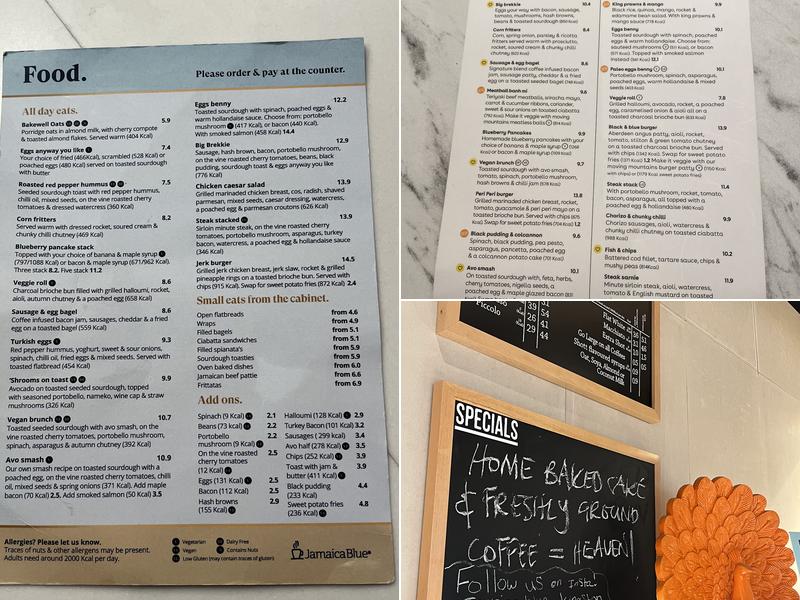 Food.
Please order & pay at the counter.
All day eats.
Bakewell Oats 5.9
Porridge oats in almond milk, with cherry compote
& toasted almond flakes. Served warm (404 Kcal)
Eggs anyway you like 7.4
Your choice of fried (466Kcal), scrambled (528 Kcal) or
poached eggs (480 Kcal) served on toasted sourdough
with butter
Roasted red pepper hummus 7.5
Seeded sourdough toast with red pepper hummus,
chilli oil, mixed seeds, on the vine roasted cherry
tomatoes & dressed watercress (360 Kcal)
Corn fritters 8.2
Served warm with dressed rocket, soured cream &
chunky chilli chutney (469 Kcal)
Blueberry pancake stack
Topped with your choice of banana & maple syrup
(797/1088 Kcal) or bacon & maple syrup (671/962 Kcal).
Three stack 8.2. Five stack 11.2
Veggie roll 8.6
Charcoal brioche bun filled with grilled halloumi, rocket,
aioli, autumn chutney & a poached egg (658 Kcal)
Sausage & egg bagel 8.6
Coffee infused bacon jam, sausages, cheddar & a fried
egg on a toasted bagel (559 Kcal)
Turkish eggs 9.3
Red pepper hummus, yoghurt, sweet & sour onions,
spinach, chilli oil, fried eggs & mixed seeds. Served with
toasted flatbread (454 Kcal)
'Shrooms on toast 9.9
Avocado on toasted seeded sourdough, topped
with seasoned portobello, nameko, wine cap & straw
mushrooms (326 Kcal)
Vegan brunch 10.7
Toasted seeded sourdough with avo smash, on the
vine roasted cherry tomatoes, portobello mushroom,
spinach, asparagus & autumn chutney (392 Kcal)
Avo smash 10.9
Our own smash recipe on toasted sourdough with a
poached egg, on the vine roasted cherry tomatoes, chilli
oil, mixed seeds & spring onions (371 Kcal). Add maple
bacon (70 Kcal) 2.5. Add smoked salmon (50 Kcal) 3.5
Eggs benny 12.2
Toasted sourdough with spinach, poached eggs &
warm hollandaise sauce. Choose from: portobello
mushroom (417 Kcal), or bacon (440 Kcal).
With smoked salmon (458 Kcal) 14.4
Big Brekkie 12.9
Sausage, hash brown, bacon, portobello mushroom,
on the vine roasted cherry tomatoes, beans, black
pudding, sourdough toast & eggs anyway you like
(776 Kcal)
Chicken caesar salad 13.9
Grilled marinated chicken breast, cos, radish, shaved
parmesan, mixed seeds, caesar dressing, watercress,
a poached egg & parmesan croutons (626 Kcal)
Steak stacked 13.9
Sirloin minute steak, on the vine roasted cherry
tomatoes, portobello mushroom, asparagus, turkey
bacon, watercress, a poached egg & hollandaise sauce
(346 Kcal)
Jerk burger 14.5
Grilled jerk chicken breast, jerk slaw, rocket & grilled
pineapple rings on a toasted brioche bun. Served with
chips (915 Kcal). Swap for sweet potato fries (872 Kcal) 2.4
Small eats from the cabinet.
Open flatbreads from 4.6
Wraps from 4.9
Filled bagels from 5.1
Ciabatta sandwiches from 5.1
Filled spianata's from 5.9
Sourdough toasties from 5.9
Oven baked dishes from 6.0
Jamaican beef pattie from 6.6
Frittatas from 6.9
Add ons.
Spinach (9 Kcal) 2.1
Beans (73 kcal) 2.2
Portobello 2.2
mushroom (9 Kcal)
On the vine roasted 2.5
cherry tomatoes
(12 Kcal)
Eggs (131 Kcal) 2.5
Bacon (112 Kcal) 2.5
Hash browns 2.9
(155 Kcal)
Halloumi (128 Kcal) 2.9
Turkey Bacon (101 Kcal) 3.2
Sausages (299 kcal) 3.4
Avo half (278 Kcal) 3.5
Chips (252 Kcal) 3.9
Toast with jam & 3.9
butter (411 Kcal)
Black pudding 4.4
(233 Kcal)
Sweet potato fries 4.8
(236 Kcal)
Allergies? Please let us know.
Traces of nuts & other allergens may be present.
Adults need around 2000 Kcal per day.
Vegetarian
Vegan
Low Gluten (may contain traces of gluten)
Dairy Free
Contains Nuts
Jamaica Blue
Big brekkie 10.4
Eggs your way with bacon, sausage,
tomato, mushrooms, hash browns,
beans & toasted sourdough
Corn fritters 8.4
Corn, spring onion, parsley & ricotta
fritters served warm with prosciutto,
rocket, soured cream & chunky chilli
chutney
Sausage & egg bagel 8.6
Signature blend coffee infused bacon
jam, sausage patty, cheddar & a fried
egg on a toasted sesame bagel
Meatball banh mi 9.6
Teriyaki beef meatballs, sriracha mayo,
carrot & cucumber ribbons, coriander,
sweet & sour onions on toasted ciabatta
Make it veggie with moving
mountains meatless balls
Blueberry Pancakes 9.9
Homemade blueberry pancakes with your
choice of banana & maple syrup
or bacon & maple syrup
Vegan brunch 9.7
Toasted sourdough with avo smash,
tomato, spinach, portobello mushroom,
hash browns & chilli jam
Peri Peri burger 13.8
Grilled marinated chicken breast, rocket,
tomato, guacamole & peri peri mayo on a
toasted brioche bun. Served with chips
Swap for sweet potato fries 1.2
Black pudding & colcannon 9.6
Spinach, black pudding, pea pesto,
asparagus, pancetta, poached egg
& a colcannon potato cake
Avo smash 10.1
Toasted sourdough with, feta, herbs,
cherry tomatoes, nigella seeds, a
poached egg & maple glazed bacon
King prawns & mango
Black rice, quinoa, mango, rocket &
edamame bean salad. With king prawns &
mango sauce
Eggs benny 10.1
Toasted sourdough with spinach, poached
eggs & warm hollandaise. Choose from:
sauteed mushrooms or bacon
Topped with smoked salmon
instead
Paleo eggs benny 10.1
Portobello mushroom, spinach, asparagus,
poached eggs, warm hollandaise &
mixed seeds
Veggie roll 7.8
Grilled halloumi, avocado, rocket, a poached
egg, caramelised onion & aioli on a toasted
charcoal brioche bun
Black & blue burger 13.9
Aberdeen angus patty, aioli, rocket,
tomato, stilton & green tomato chutney
on a toasted charcoal brioche bun. Served
with chips Swap for sweet potato
fries 1.2 Make it veggie with our
moving mountains burger patty
Steak stack 11.4
With portobello mushroom, rocket, tomato,
bacon, asparagus, all topped with a
poached egg & hollandaise
Chorizo & chunky chilli 9.9
Chorizo sausage, aioli, watercress &
chunky chilli chutney on toasted ciabatta
Fish & chips 10.2
Battered cod fillet, tartare sauce, chips &
mushy peas
Steak sarnie 11.9
Minute sirloin steak, aioli, watercress,
tomato & English mustard on toasted
Piccolo
Flat White
Macchiato
Extra Shot
Go Large on all Coffees
Shott flavoured syrups
Oat, Soy, Almond,
Coconut Milk
SPECIALS
HOME BAKED CAKE
& FRESHLY GROUND
COFFEE = HEAVEN!
Follow us on insta!